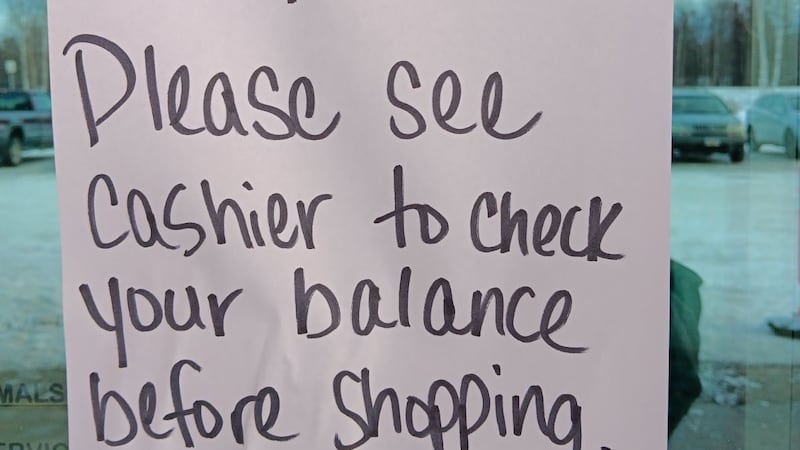 Please see
Cashier to check
your balance
before shopping.
MALS